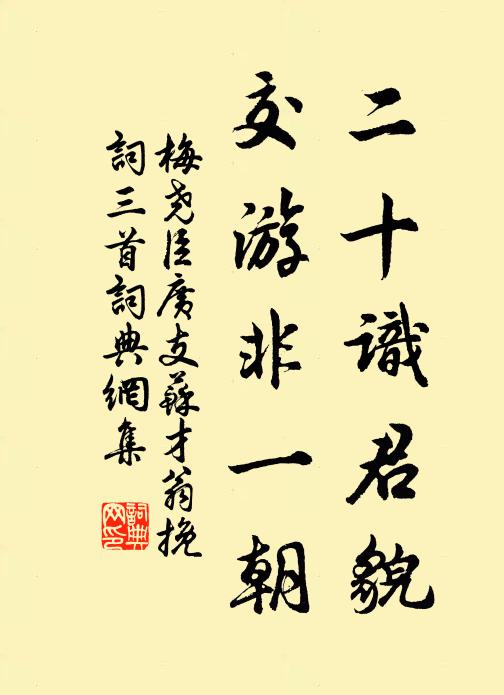 二十識君貌
交游非一朝
梅堯臣廣支蘇才翁挽
詞三首詞典網集
詞典網印